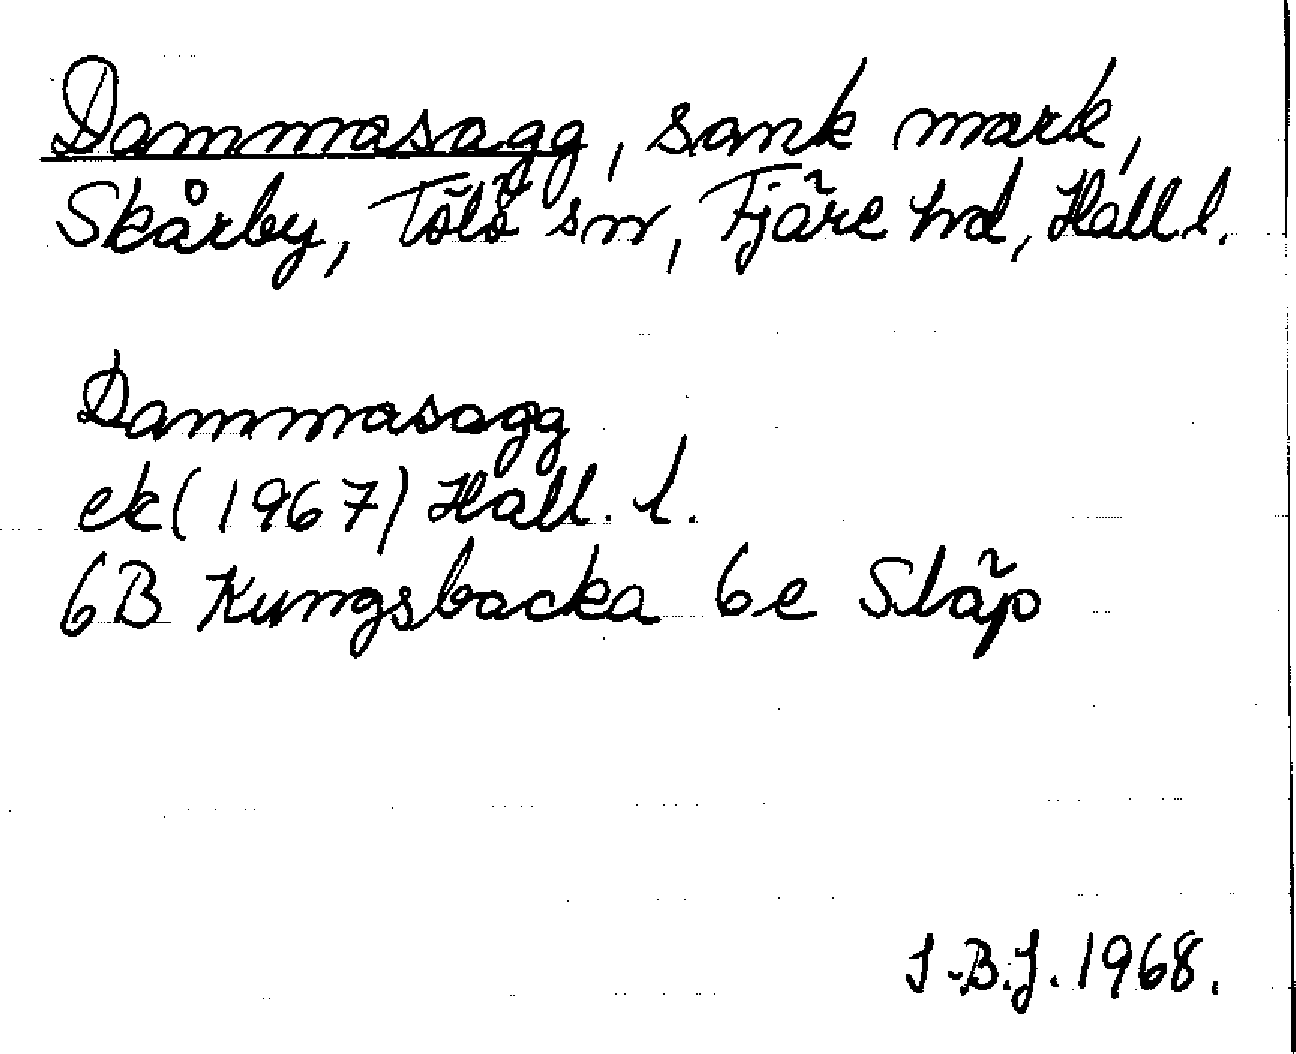 Dammasagg, sank mark,
Skårby, Tölö sn, Fjäre hd, Hall l.
Dammasagg
ek (1967) Hall. l.
6B Kungsbacka 6e Släp
I-B.J. 1968.